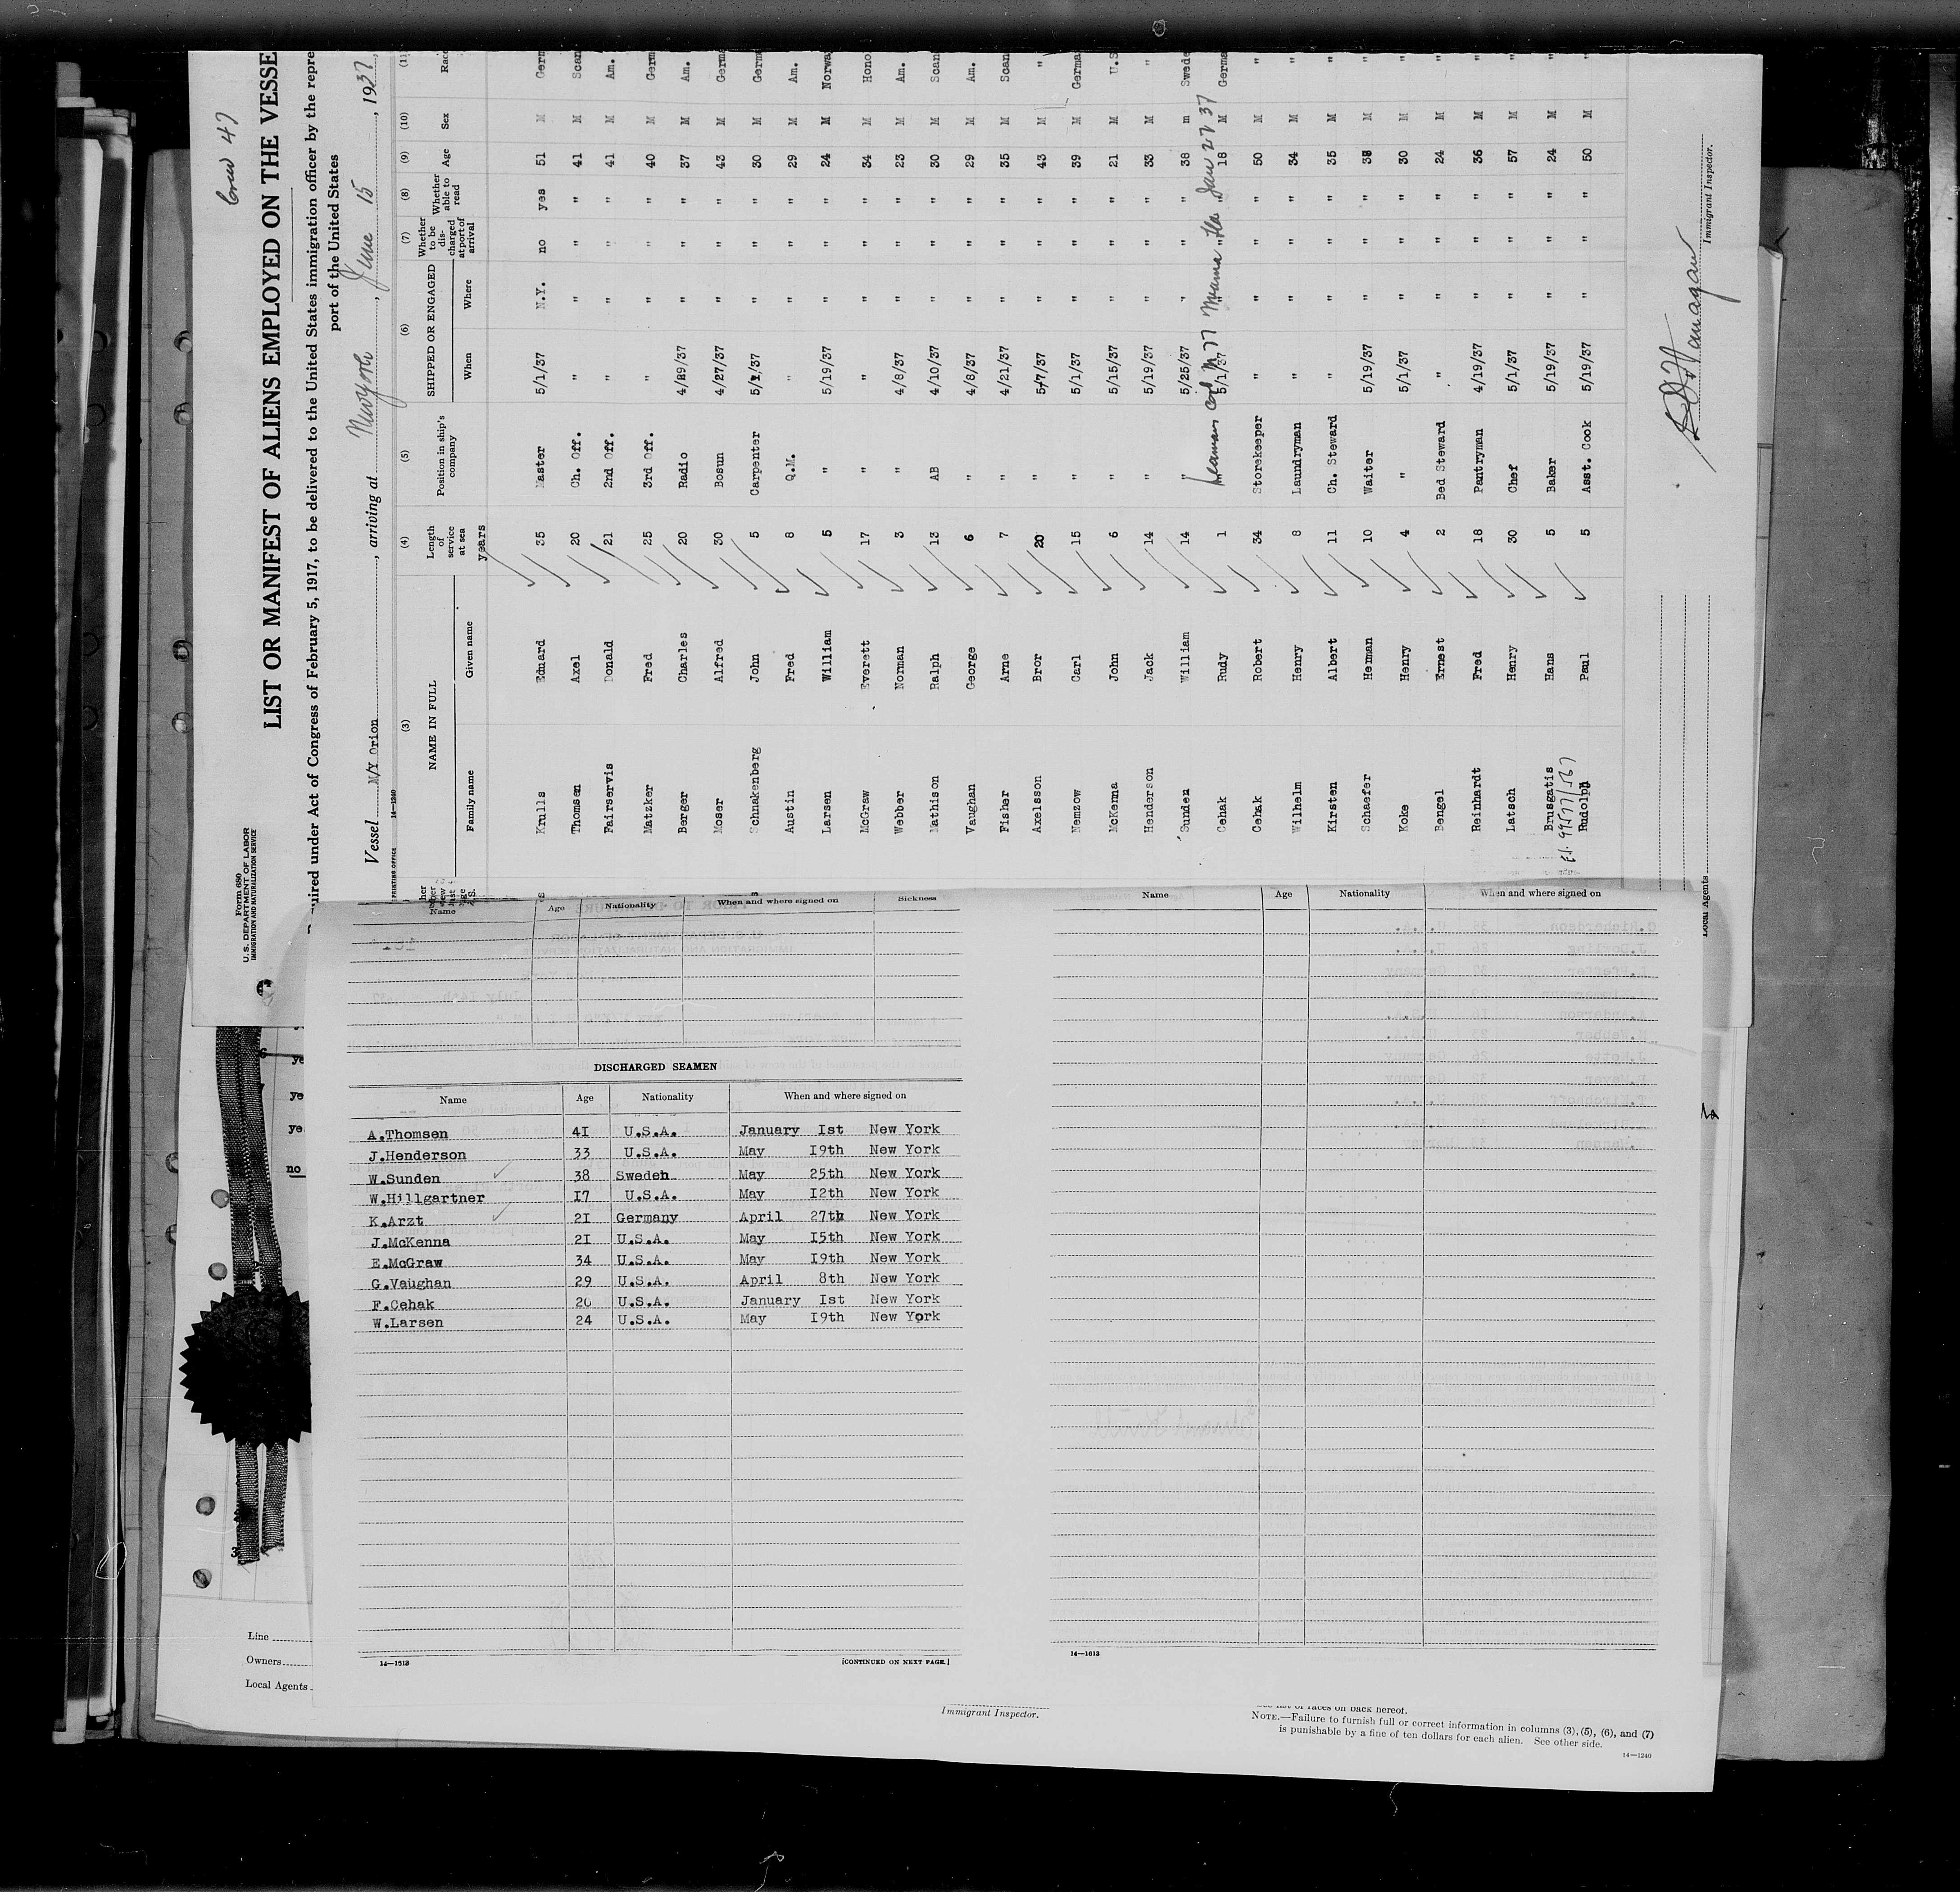 Crew 47
Form 680
U.S. DEPARTMENT OF LABOR
IMMIGRATION AND NATURALIZATION SERVICE
LIST OR MANIFEST OF ALIENS EMPLOYED ON THE VESSE
uired under Act of Congress of February 5, 1917, to be delivered to the United States immigration officer by the repre
port of the United States
Vessel M/Y Orion, arriving at New York, June 15, 1937
14-1240
PRINTING OFFICE
(3) (4) (5) (6) (7) (8) (9) (10) (1
NAME IN FULL Length of service at sea Position in ship's company SHIPPED OR ENGAGED Whether to be discharged at port of arrival Whether able to read Age Sex Race
Family name Given name When Where
years
Krulls Eduard 35 Master 5/1/37 N.Y. no yes 51 M Germ
Thomsen Axel 20 Ch. Off. " " " " 41 M Scan
Fairservis Donald 21 2nd Off. " " " " 41 M Am.
Matzker Fred 25 3rd Off. " " " " 40 M Germ
Berger Charles 20 Radio 4/29/37 " " " 37 M Am.
Moser Alfred 30 Bosun 4/27/37 " " " 43 M Germ
Schnakenberg John 5 Carpenter 5/1/37 " " " 30 M Germ
Austin Fred 8 Q.M. " " " " 29 M Am.
Larsen William 5 " 5/19/37 " " " 24 M Norwa
McGraw Everett 17 " " " " " 34 M Hono
Webber Norman 3 " 4/8/37 " " " 23 M Am.
Mathison Ralph 13 AB 4/10/37 " " " 30 M Scan
Vaughan George 6 " 4/8/37 " " " 29 M Am.
Fisher Arne 7 " 4/21/37 " " " 35 M Scan
Axelsson Bror 20 " 5/7/37 " " " 43 M "
Nemzow Carl 15 " 5/1/37 " " " 39 M Germa
McKenna John 6 " 5/15/37 " " " 21 M U.S
Henderson Jack 14 " 5/19/37 " " " 33 M "
Sunden William 14 " 5/25/37 " " " 38 m Swede
Cehak Rudy 1 5/1/37 " " 18 M Germa
Cehak Robert 34 Storekeeper " " " " 50 M "
Wilhelm Henry 8 Laundryman " " " " 34 M "
Kirsten Albert 11 Ch. Steward " " " " 35 M "
Schaefer Herman 10 Waiter 5/19/37 " " " 38 M "
Koke Henry 4 " 5/1/37 " " " 30 M "
Bengel Ernest 2 Bed Steward " " " " 24 M "
Reinhardt Fred 18 Pantryman 4/19/37 " " " 36 M "
Latsch Henry 30 Chef 5/1/37 " " " 57 M "
Brusgatis Hans 5 Baker 5/19/37 " " " 24 M "
Rudolph Paul 5 Asst. Cook 5/19/37 " " " 50 M "
Immigrant Inspector.
Local Agents
Name Age Nationality When and where signed on Sickness
DISCHARGED SEAMEN
Name Age Nationality When and where signed on
A.Thomsen 41 U.S.A. January 1st New York
J.Henderson 33 U.S.A. May 19th New York
W.Sunden 38 Sweden May 25th New York
W.Hillgartner 17 U.S.A. May 12th New York
K.Arzt 21 Germany April 27th New York
J.McKenna 21 U.S.A. May 15th New York
E.McGraw 34 U.S.A. May 19th New York
G.Vaughan 29 U.S.A. April 8th New York
F.Cehak 20 U.S.A. January 1st New York
W.Larsen 24 U.S.A. May 19th New York
14—1513
[CONTINUED ON NEXT PAGE.]
Name Age Nationality When and where signed on
14—1613
ye
ye
ye
no
3
Line
Owners
Local Agents
Immigrant Inspector.
See list of races on back hereof.
NOTE.—Failure to furnish full or correct information in columns (3), (5), (6), and (7)
is punishable by a fine of ten dollars for each alien. See other side.
14—1240